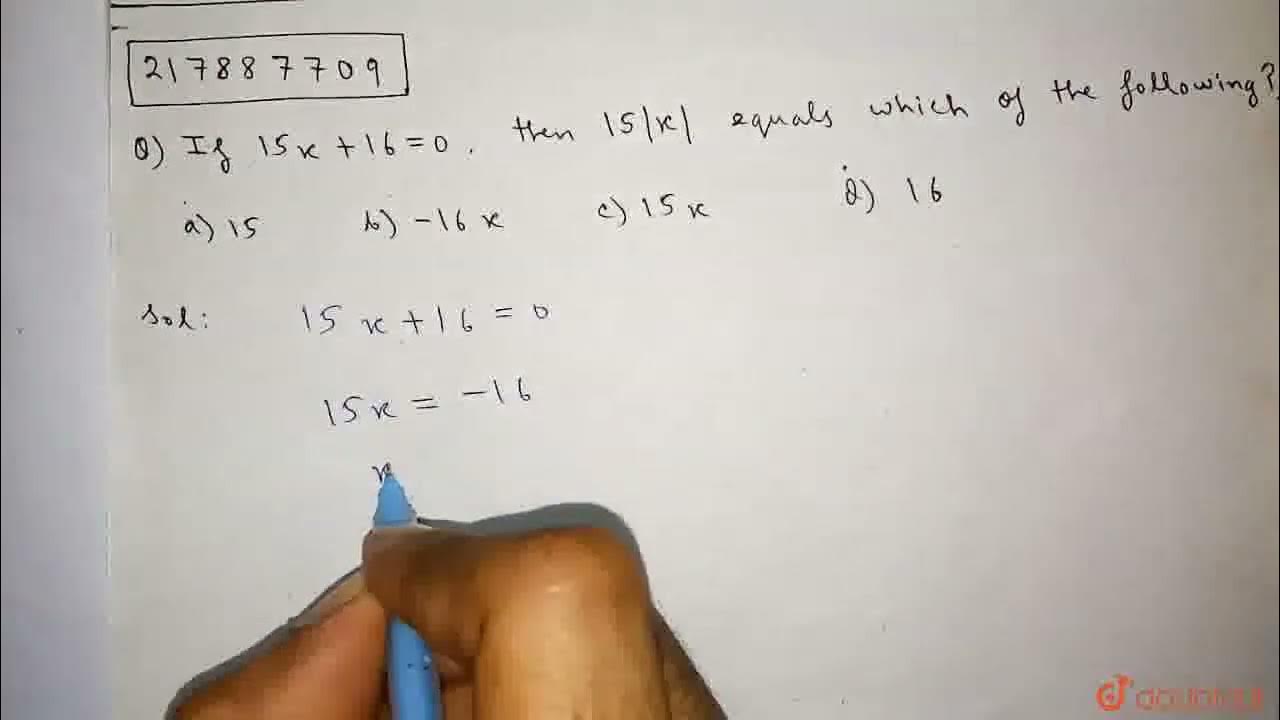 217887709
Q) If 15x+16=0. then 15|x| equals which of the following?
a) 15 b) -16x c) 15x d) 16
Sol: 15x+16=0
15x = -16
x
doubtnut